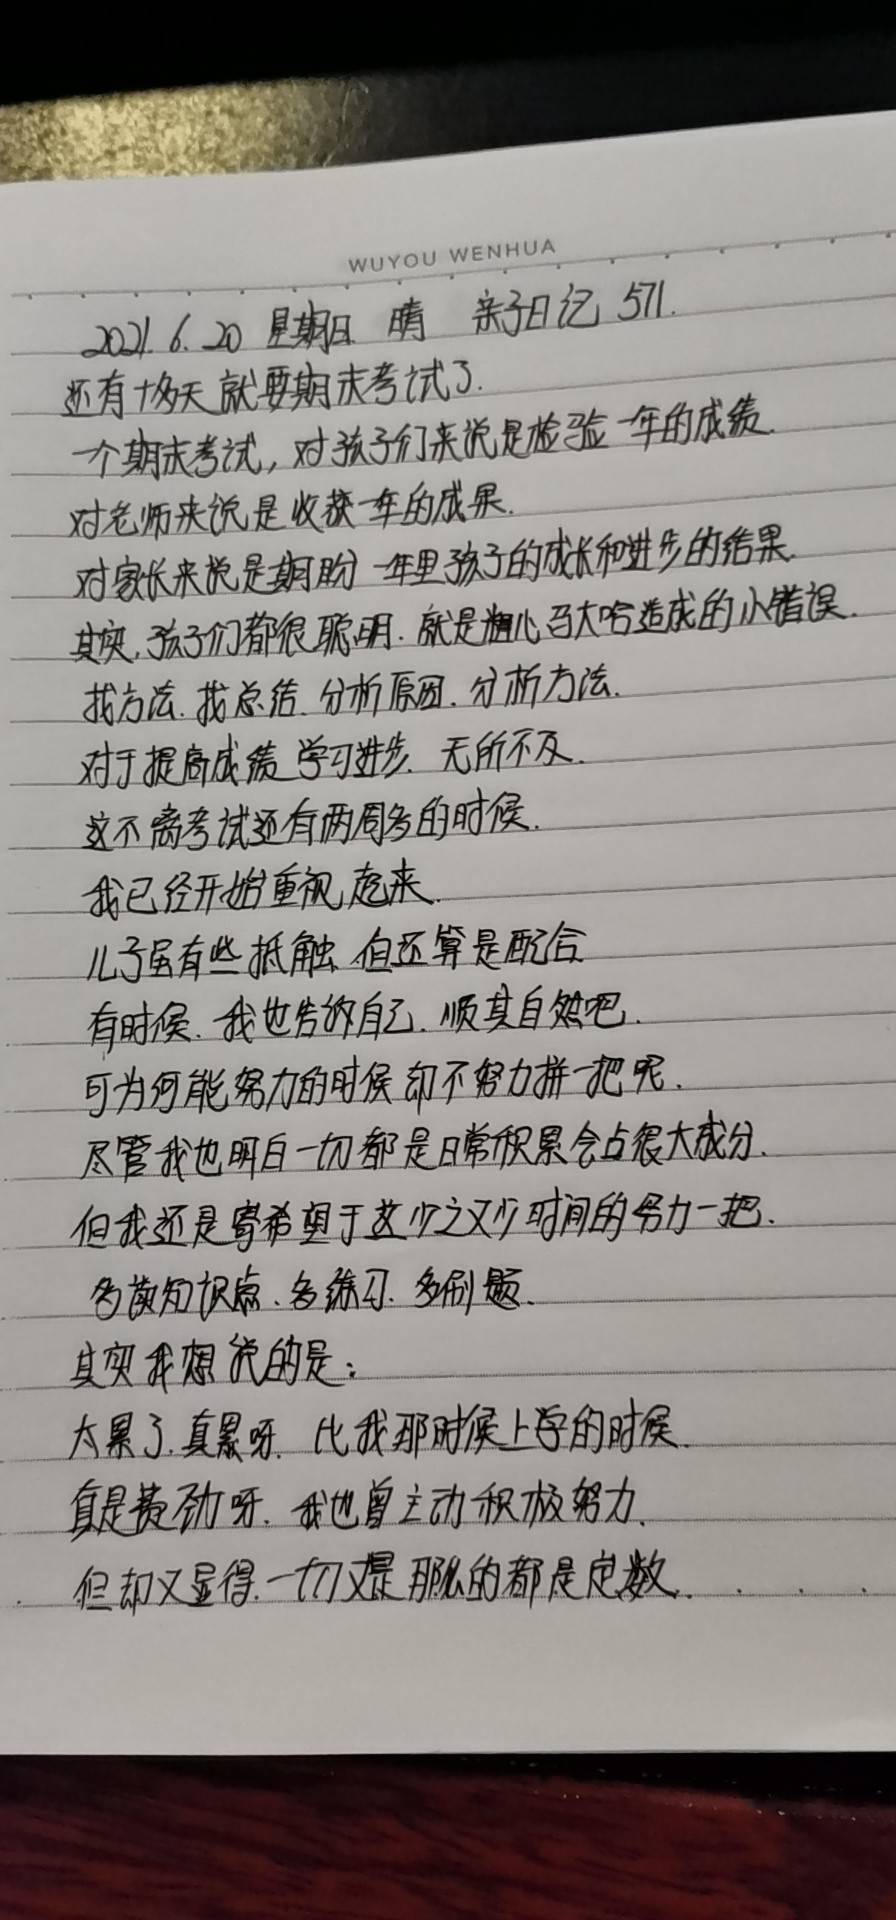 WUYOU WENHUA
2021.6.20 星期日 晴 亲子日记 571.
还有十多天就要期末考试了.
一个期末考试，对孩子们来说是检验一年的成绩.
对老师来说是收获一年的成果.
对家长来说是期盼一年里孩子的成长和进步的结果.
其实,孩子们都很聪明.就是粗心马大哈造成的小错误.
找方法.找总结.分析原因.分析方法.
对于提高成绩学习进步.无所不及.
这不离考试还有两周多的时候.
我已经开始重视起来.
儿子虽有些抵触.但还算是配合
有时候.我也告诉自己.顺其自然吧.
可为何能努力的时候却不努力拼一把呢.
尽管我也明白一切都是日常积累会占很大成分.
但我还是寄希望于这少之又少时间的努力一把.
多读知识点.多练习.多刷题.
其实我想说的是：
太累了.真累呀.比我那时候上学的时候.
真是费劲呀.我也曾主动积极努力.
但却又显得.一切又是那么的都是定数....